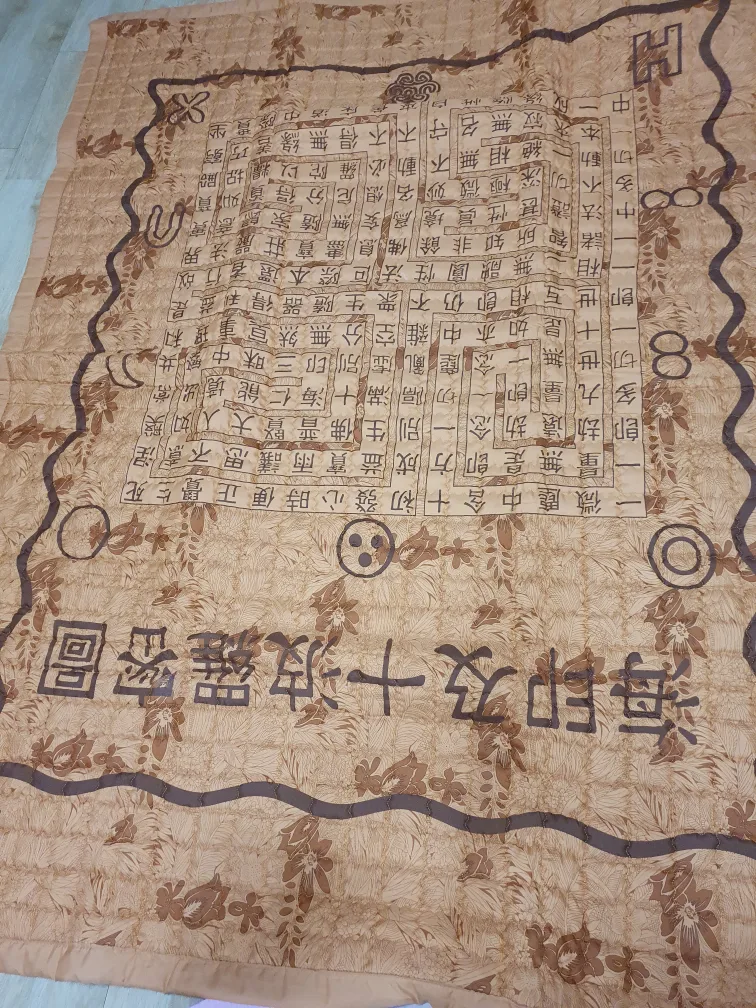 海印及十波羅密圖
一微塵中含十初發心時便正覺生死
一量無是卽方成益寶雨議思不意涅
卽劫遠劫念一別生佛普賢大人如槃
多九量卽一切隔滿十海仁能境出常
切世無一念塵亂虛別印三昧中繁共
一十是如亦中雜空分無然冥事理和
卽世互相卽仍不衆生隨器得利益是
一相二無融圓性法叵際本還者行故
一諸智所知非餘佛息盡寶莊嚴法界
中法證甚性眞境爲妄無隨家歸意實
多不切深極微妙名想尼分得資如寶
切動一絕相無不動必羅陀以糧捉殿
一本來寂無名守不不得無緣善巧窮
中一成緣隨性自來舊床道中際實坐